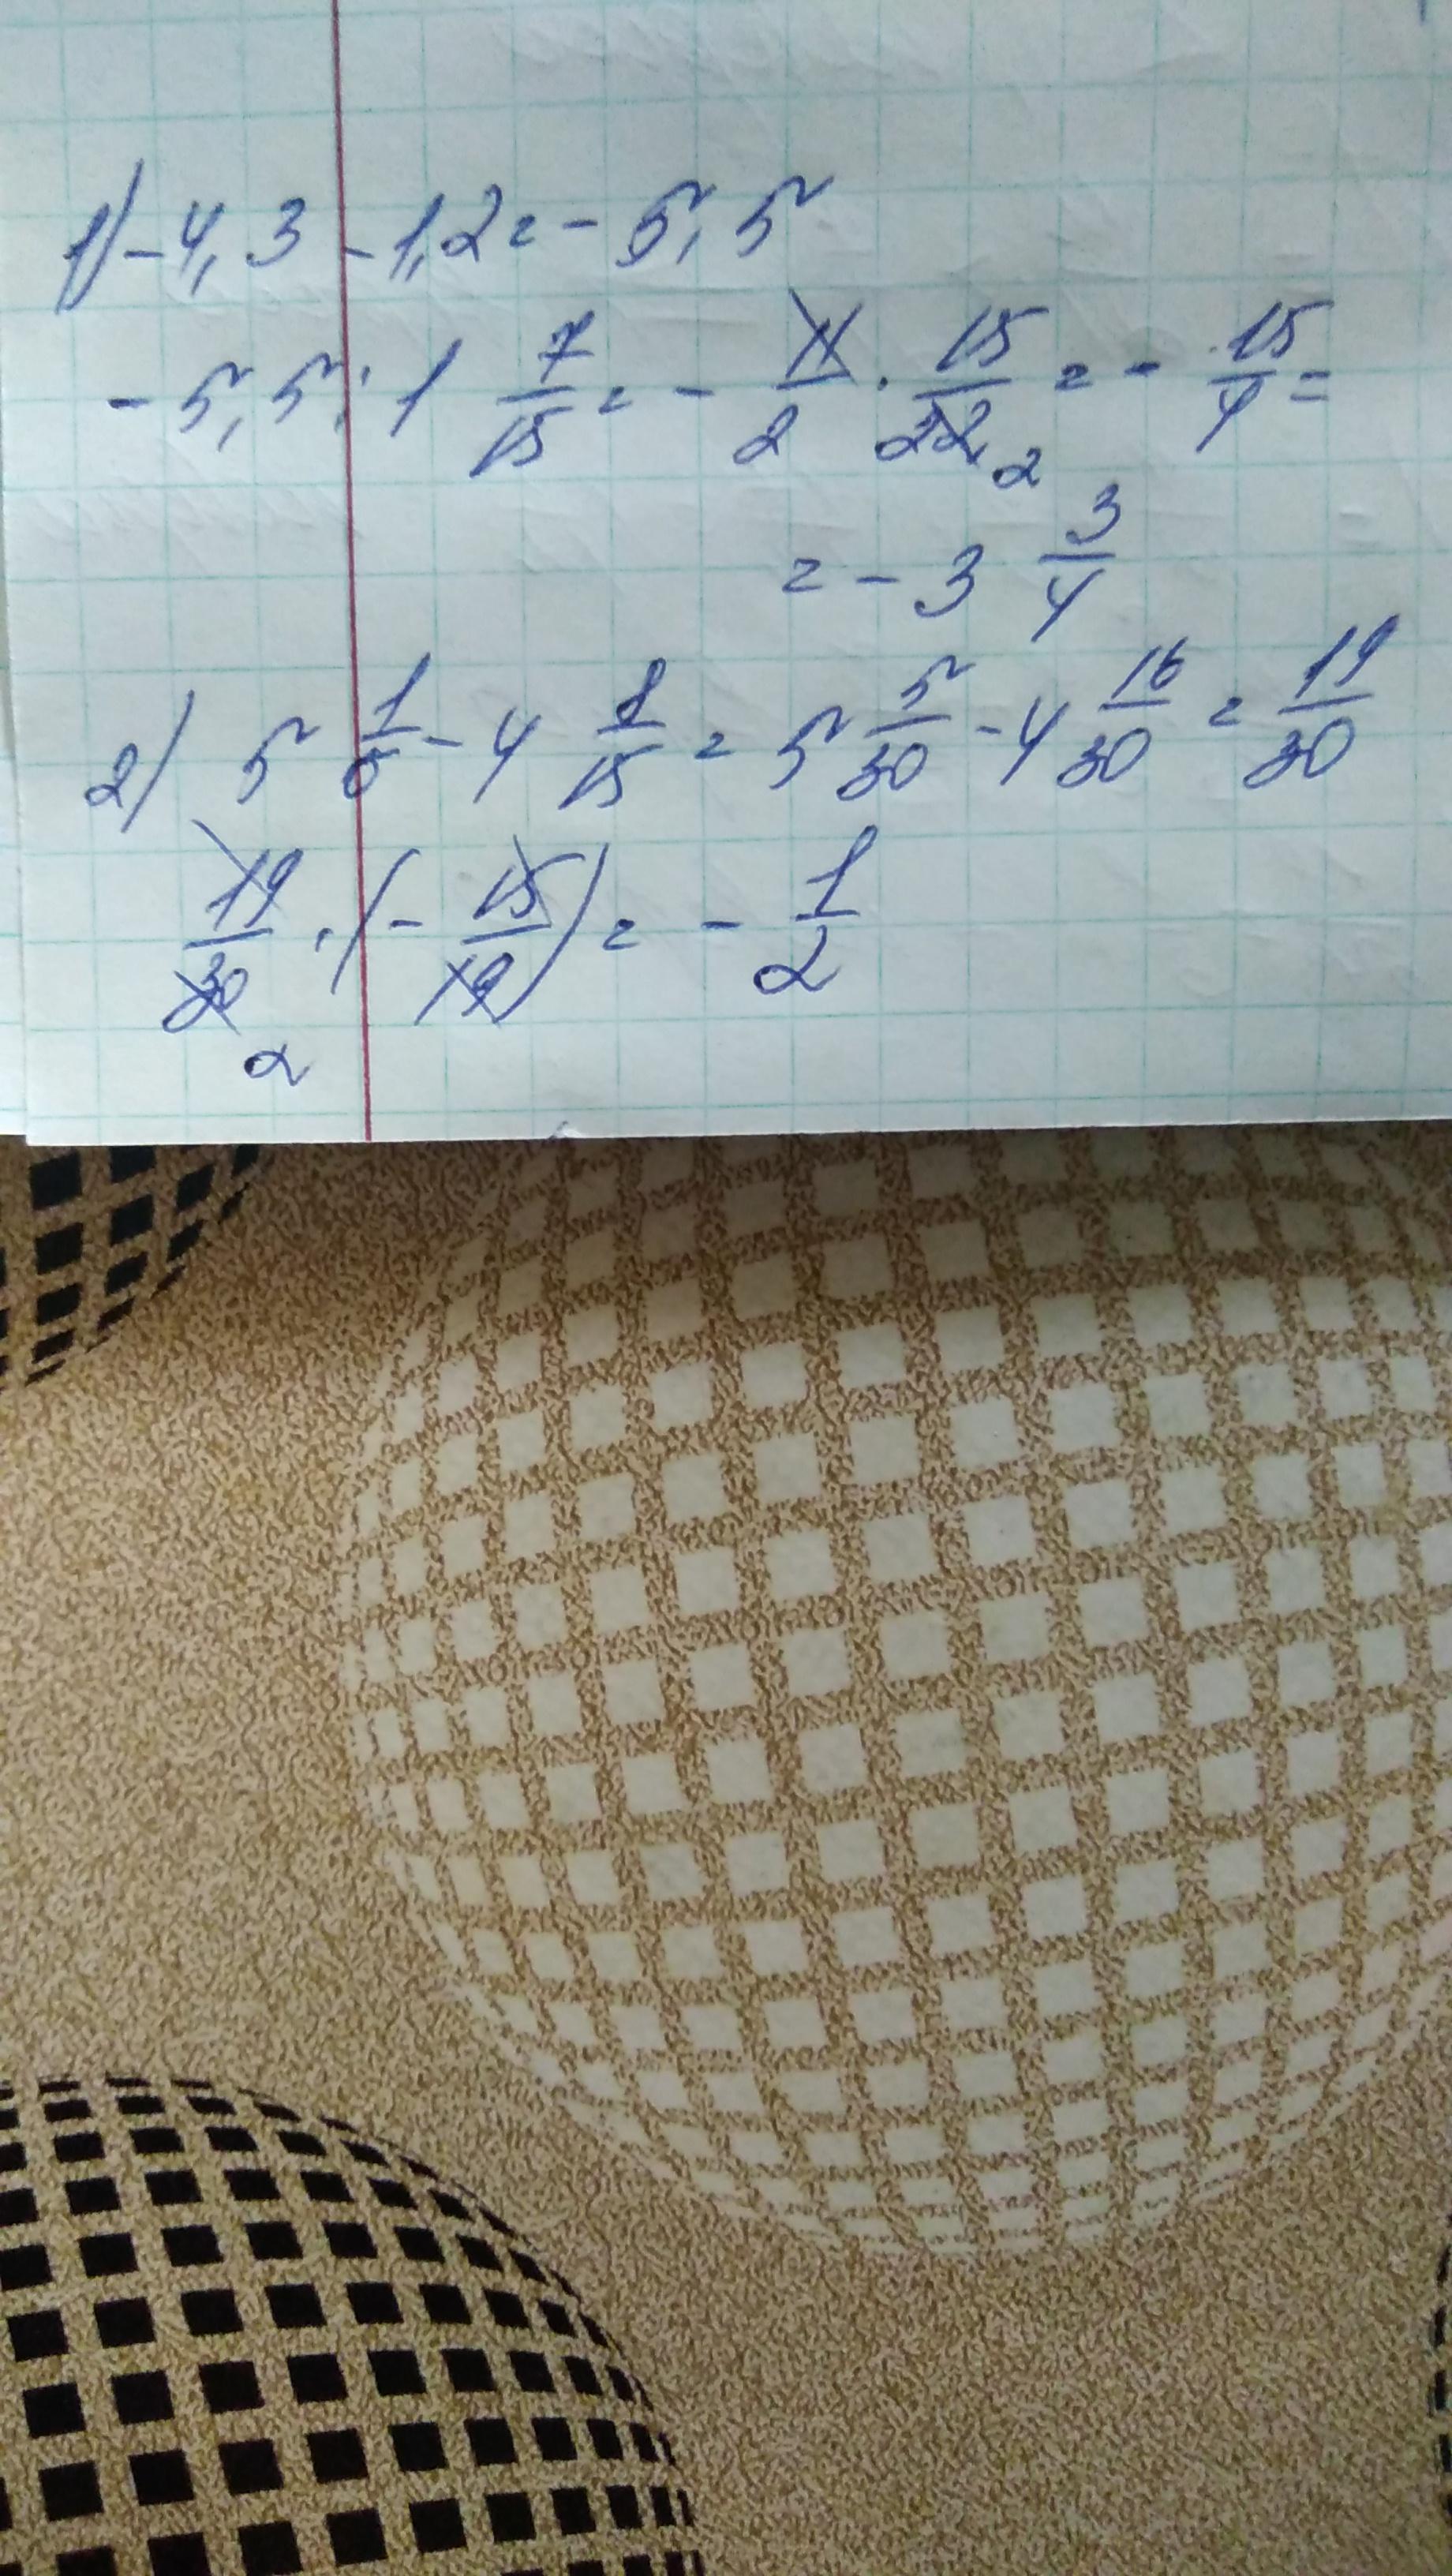 1) -4,3 -1,2 = -5,5
-5,5 : 1 7/15 = - 11/2 · 15/22 2 = - 15/4 =
= -3 3/4
2) 5 1/6 - 4 8/15 = 5 5/30 - 4 16/30 = 19/30
19/30 · (- 15/19) = - 1/2
2